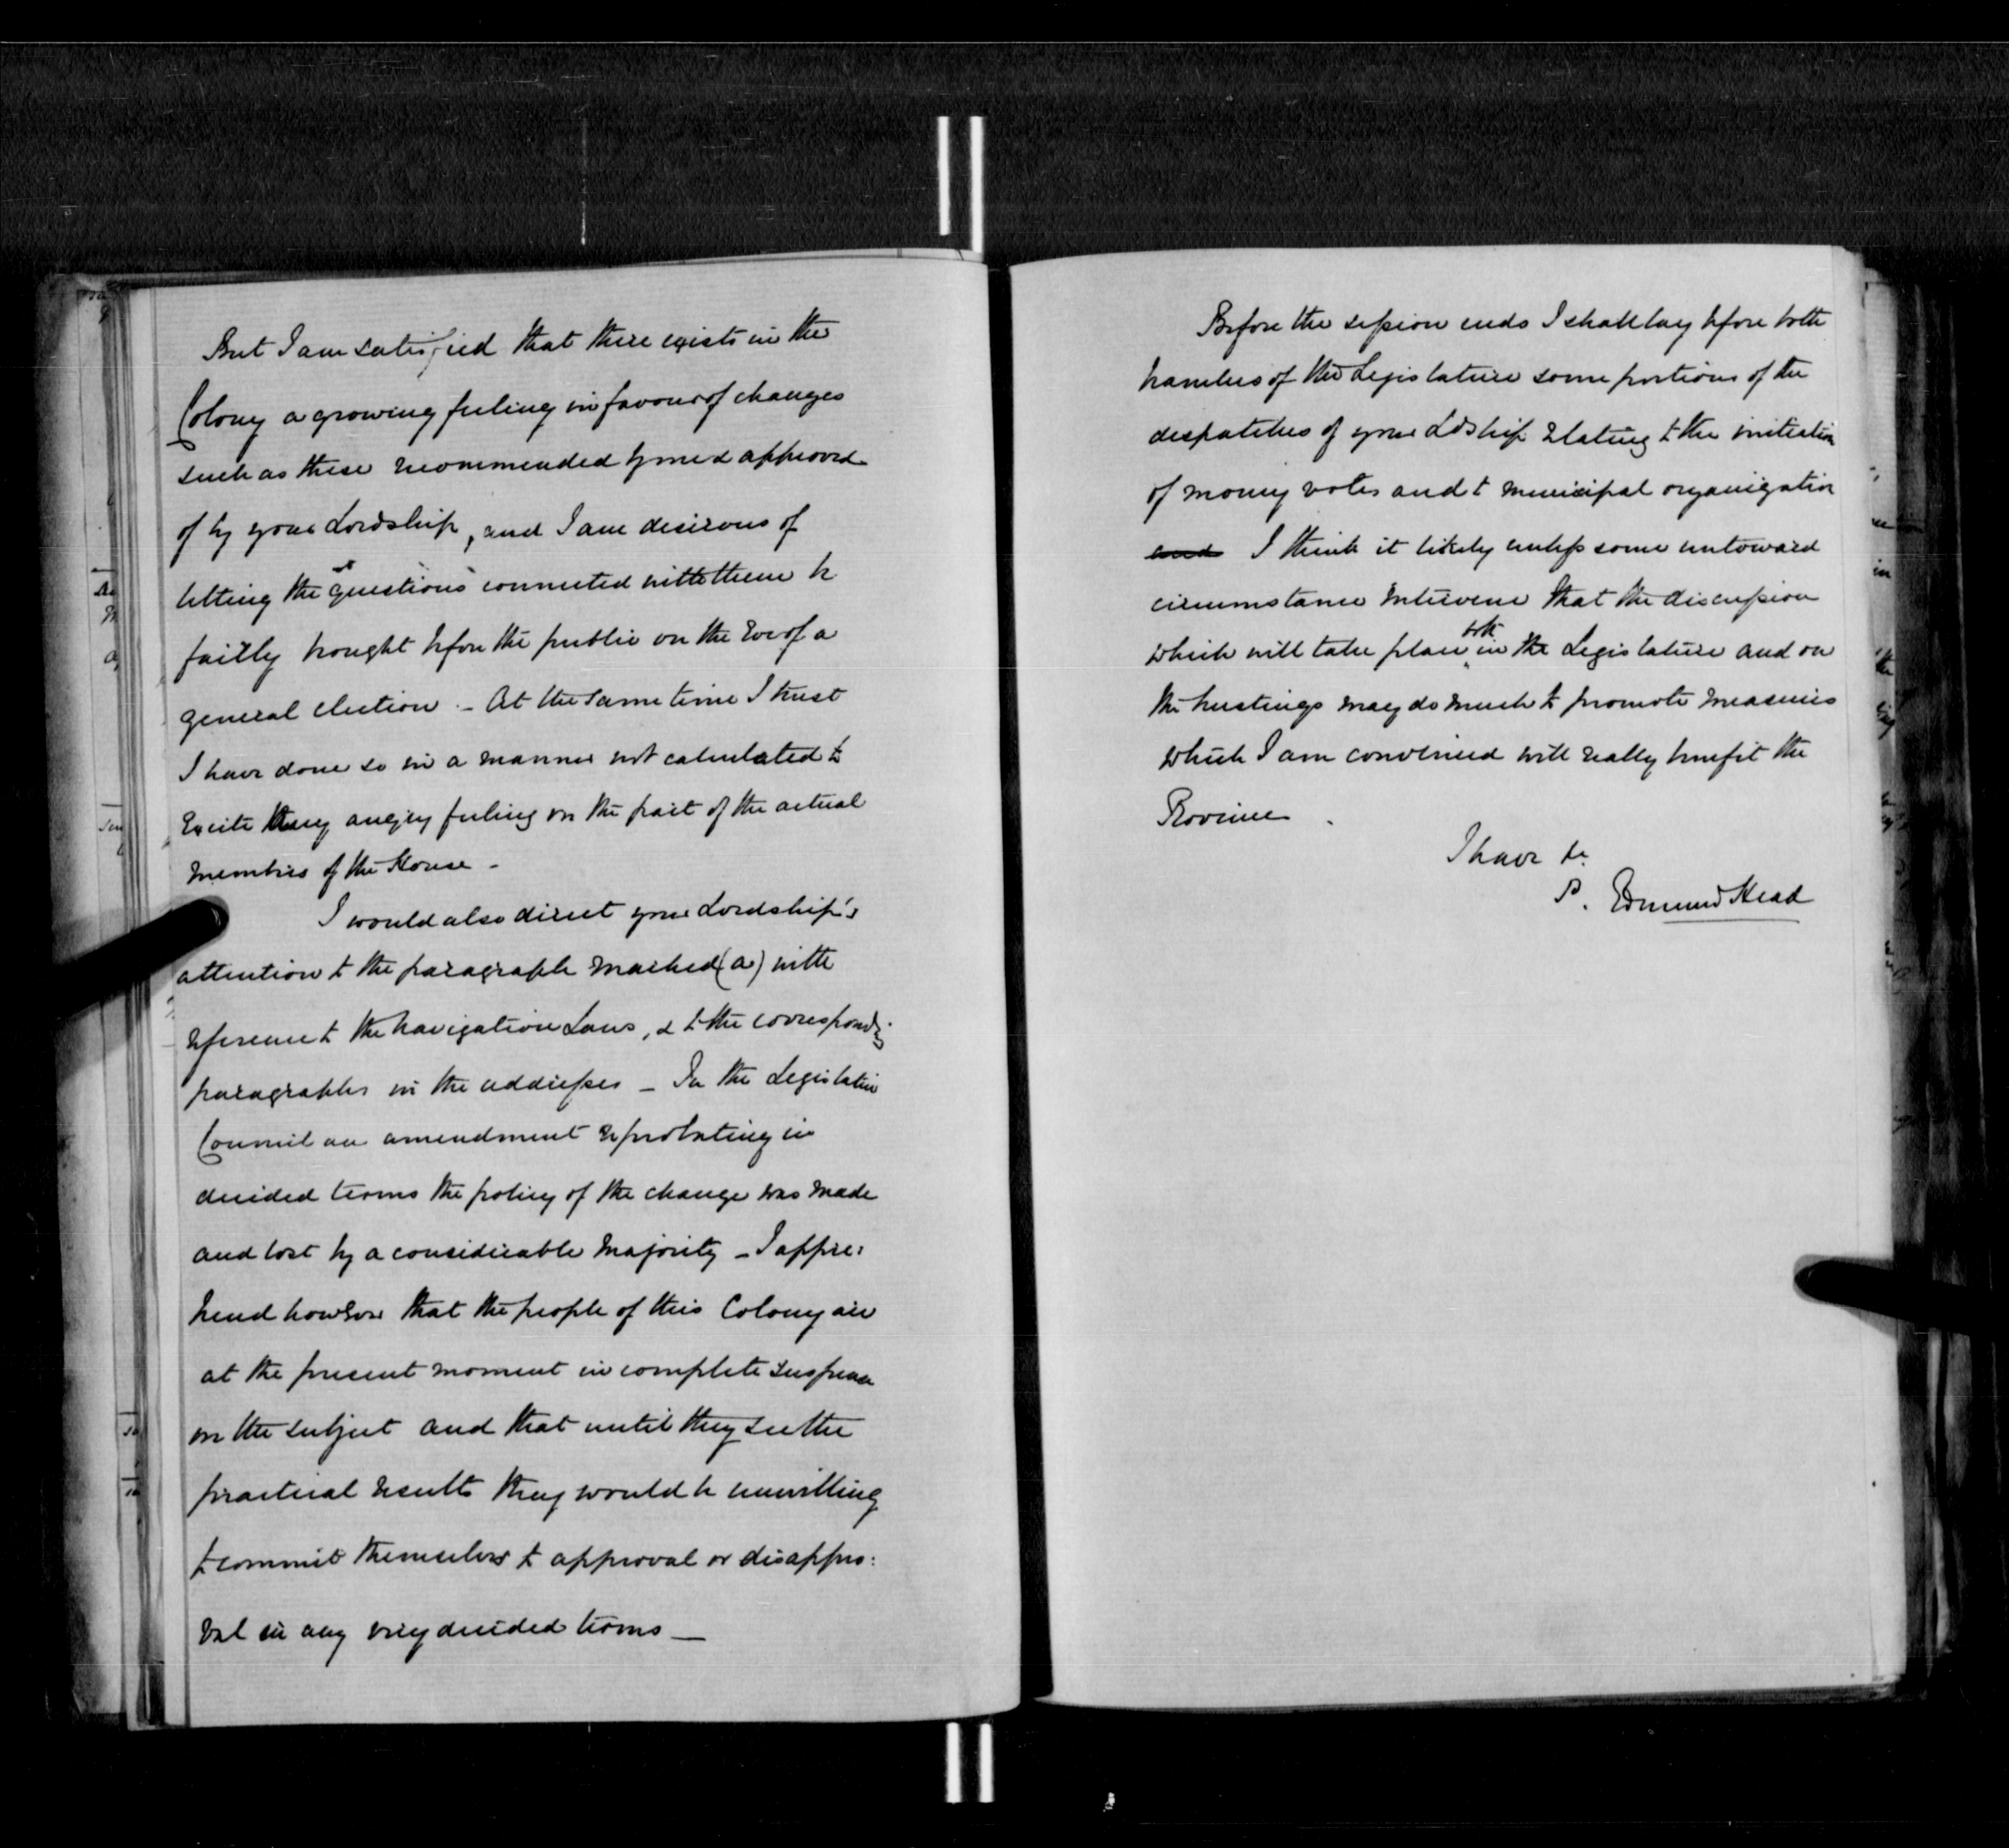 But I am satisfied that there exists in the
Colony a growing feeling in favour of changes
such as these recommended by me & approved
of by your Lordship, and I am desirous of
letting the questions connected with them be
fairly brought before the public on the Eve of a
general election. - At the same time I trust
I have done so in a manner not calculated to
Excite any angry feeling on the part of the actual
members of the House -
I would also direct your Lordship's
attention to the paragraph marked (a) with
reference to the Navigation Laws, & to the correspondg.
paragraphs in the addresses - In the Legislative
Council an amendment reprobating in
decided terms the policy of the change was made
and lost by a considerable majority - I appre:
hend however that the people of this Colony are
at the present moment in complete suspense
on the subject and that until they see the
practical results they would be unwilling
to commit themselves to approval or disappro:
val in any very decided terms -
Before the session ends I shall lay before both
branches of the Legislature some portions of the
despatches of your Ldship relating to the initiation
of money votes and to municipal organization
and I think it likely unless some untoward
circumstance intervene that the discussion
which will take place both in the Legislature and on
the hustings may do much to promote measures
which I am convinced will really benefit the
Province.
I have &c
Edmund Head